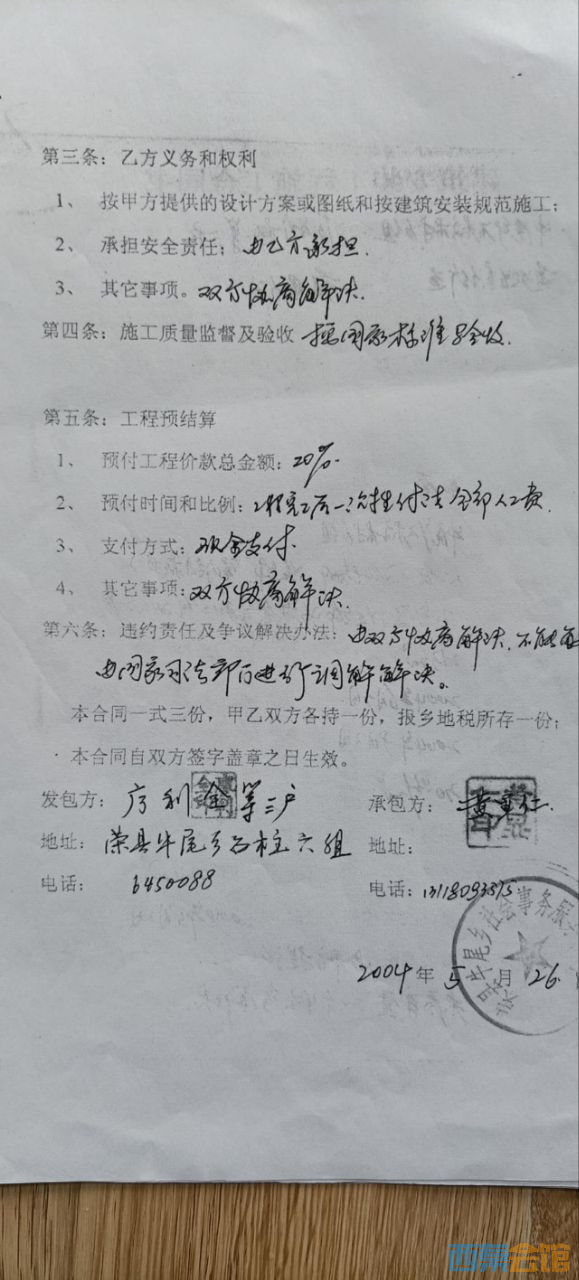 第三条：乙方义务和权利
1、 按甲方提供的设计方案或图纸和按建筑安装规范施工；
2、 承担安全责任：由乙方承担.
3、 其它事项。双方协商解决.
第四条：施工质量监督及验收 按国家标准验收.
第五条：工程预结算
1、 预付工程价款总金额：20%.
2、 预付时间和比例：工程完工后一次性付清全部工费.
3、 支付方式：现金支付.
4、 其它事项：双方协商解决.
第六条：违约责任及争议解决办法：由双方协商解决.不能
由国家司法部门进行调解解决。
本合同一式三份，甲乙双方各持一份，报乡地税所存一份；
本合同自双方签字盖章之日生效。
发包方： 利金等三户
承包方： 黄 仁
地址： 荣县牛尾乡石柱六组
地址：
电话： 6450088
电话：
牛尾乡社会事务服
2004年5月26
西祠会馆